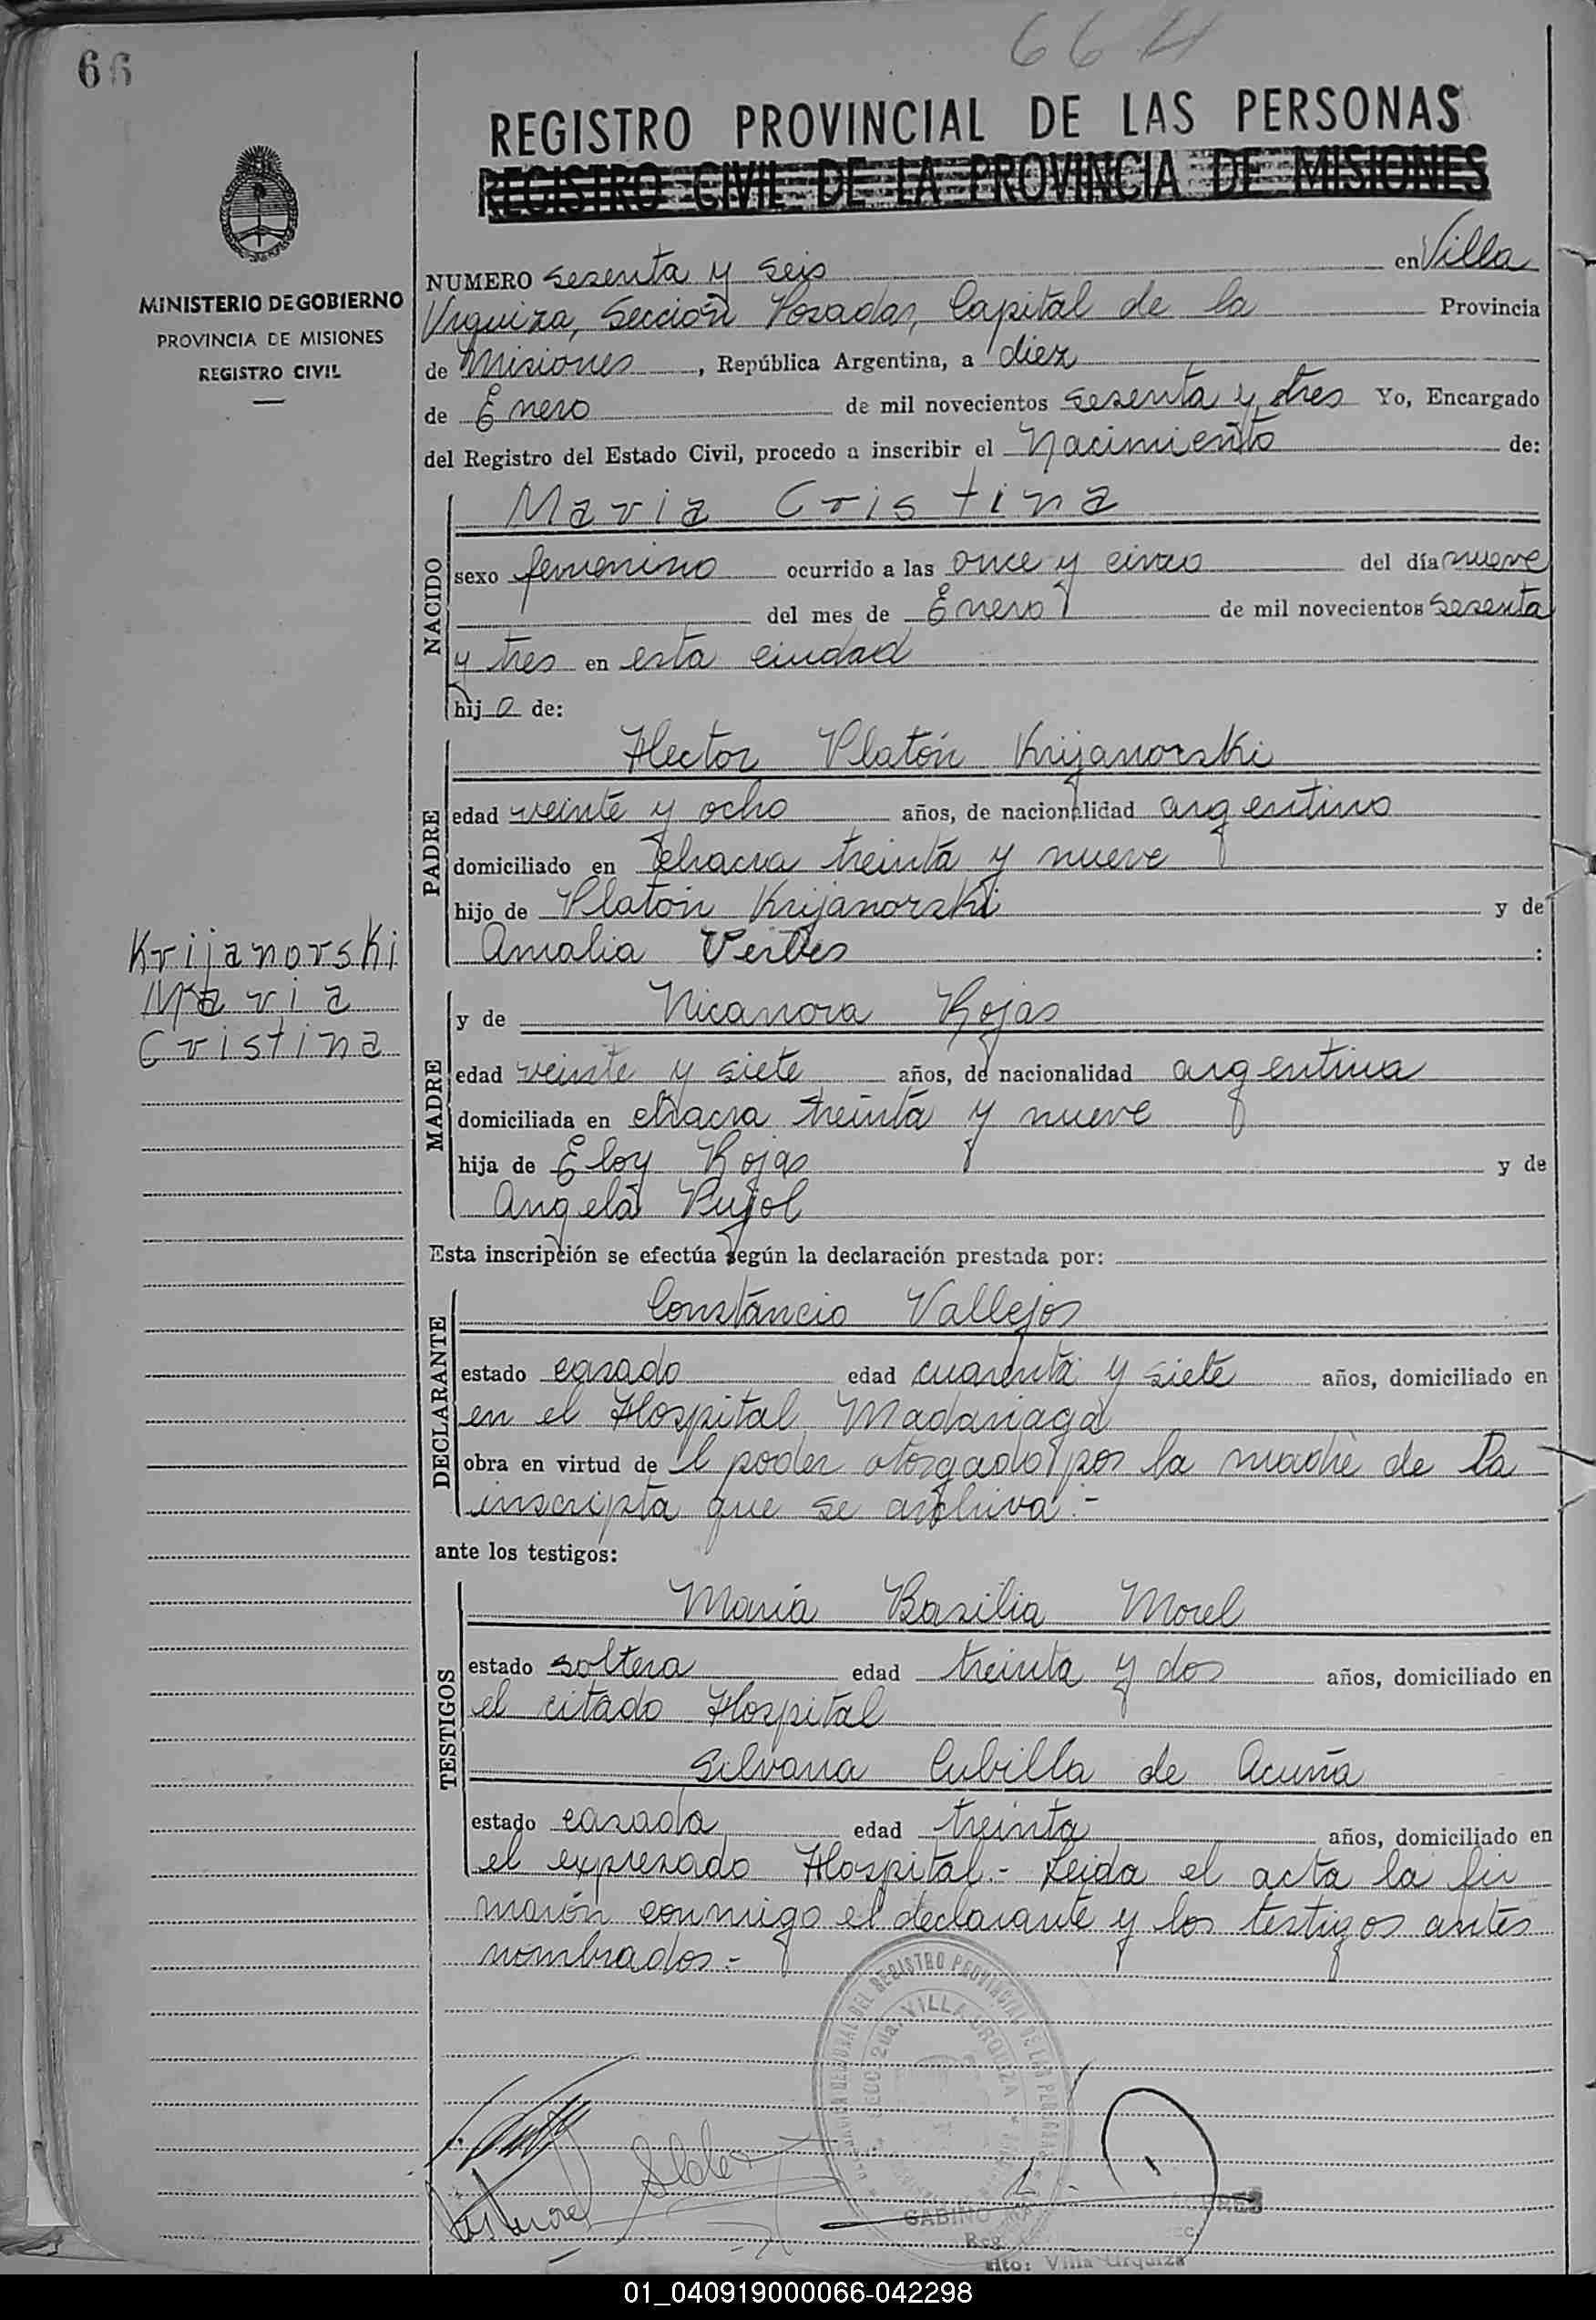 66
66 H
REGISTRO PROVINCIAL DE LAS PERSONAS
REGISTRO CIVIL DE LA PROVINCIA DE MISIONES
MINISTERIO DE GOBIERNO
PROVINCIA DE MISIONES
REGISTRO CIVIL
NUMERO sesenta y seis en Villa
Urquiza, Sección Posadas, Capital de la Provincia
de Misiones, República Argentina, a diez
de Enero de mil novecientos sesenta y tres Yo, Encargado
del Registro del Estado Civil, procedo a inscribir el Nacimiento de:
NACIDO
Maria Cristina
sexo femenino ocurrido a las once y cinco del día nueve
del mes de Enero de mil novecientos sesenta
y tres en esta ciudad
hija de:
PADRE
Hector Platón Krijanorski
edad veinte y ocho años, de nacionalidad argentino
domiciliado en chacra treinta y nueve
hijo de Platón Krijanorski y de
Amalia Verbes :
Krijanorski
Maria
Cristina
MADRE
y de Nicanora Rojas
edad veinte y siete años, de nacionalidad argentina
domiciliada en chacra treinta y nueve
hija de Eloy Rojas y de
Angela Pujol
Esta inscripción se efectúa según la declaración prestada por:
DECLARANTE
Constancio Vallejos
estado casado edad cuarenta y siete años, domiciliado en
en el Hospital Madariaga
obra en virtud de l poder otorgado por la madre de la
inscripta que se archiva.-
ante los testigos:
TESTIGOS
Maria Basilia Morel
estado soltera edad treinta y dos años, domiciliado en
el citado Hospital
Silvana Cubilla de Acuña
estado casada edad treinta años, domiciliado en
el expresado Hospital.- Leida el acta la fir
marón conmigo el declarante y los testigos antes
nombrados.-
DEL REGISTRO PROVINCIAL DE LAS PERSONAS
VILLA URQUIZA
GABINO
Villa Urquiza
01_040919000066-042298